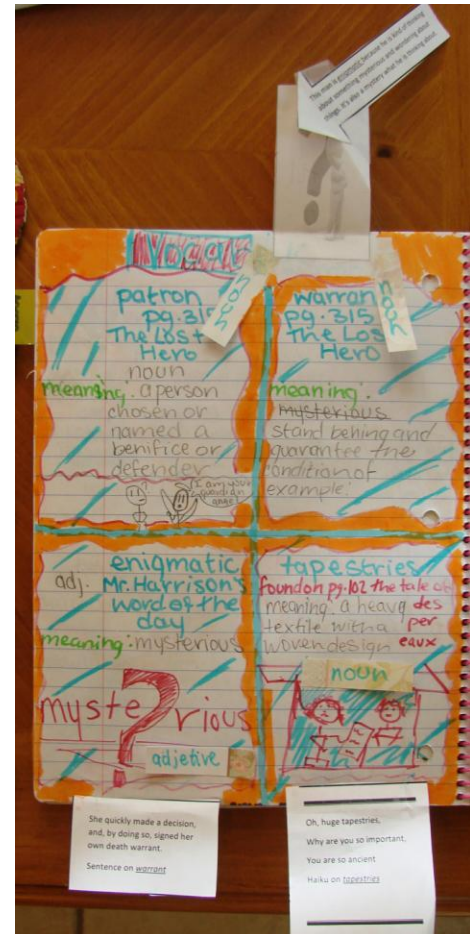 This man is enigmatic because he is kind of thinking
about something mysterious and wondering about
things. It's also a mystery what he is thinking about.
?
VOCAB
noun
noun
patron
pg.315
The Lost
Hero
noun
meaning: a person
chosen or
named a
benifice or
defender
I am your
guardian
angel
warran
pg.315
The Los
Hero
meaning:
mysterious
stand behing and
guarantee the
condition of
example.
enigmatic
adj. Mr.Harrison's
word of the
day
meaning: mysterious
myste?rious
adjetive
tapestries
found on pg.102 the tale of
meaning: a heavy des
textile with a per
woven design eaux
noun
She quickly made a decision,
and, by doing so, signed her
own death warrant.
Sentence on warrant
Oh, huge tapestries,
Why are you so important,
You are so ancient
Haiku on tapestries